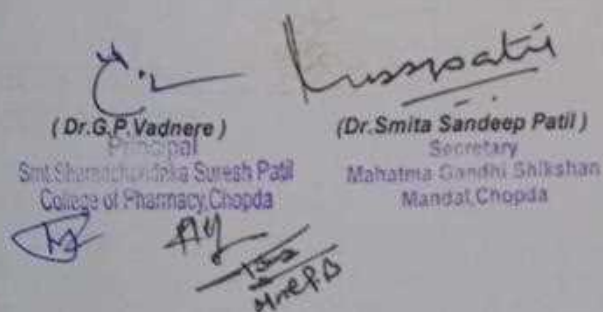 ( Dr.G.P.Vadnere )
Principal
Smt. Sharadchandrika Suresh Patil
College of Pharmacy, Chopda
(Dr.Smita Sandeep Patil )
Secretary
Mahatma Gandhi Shikshan
Mandal, Chopda